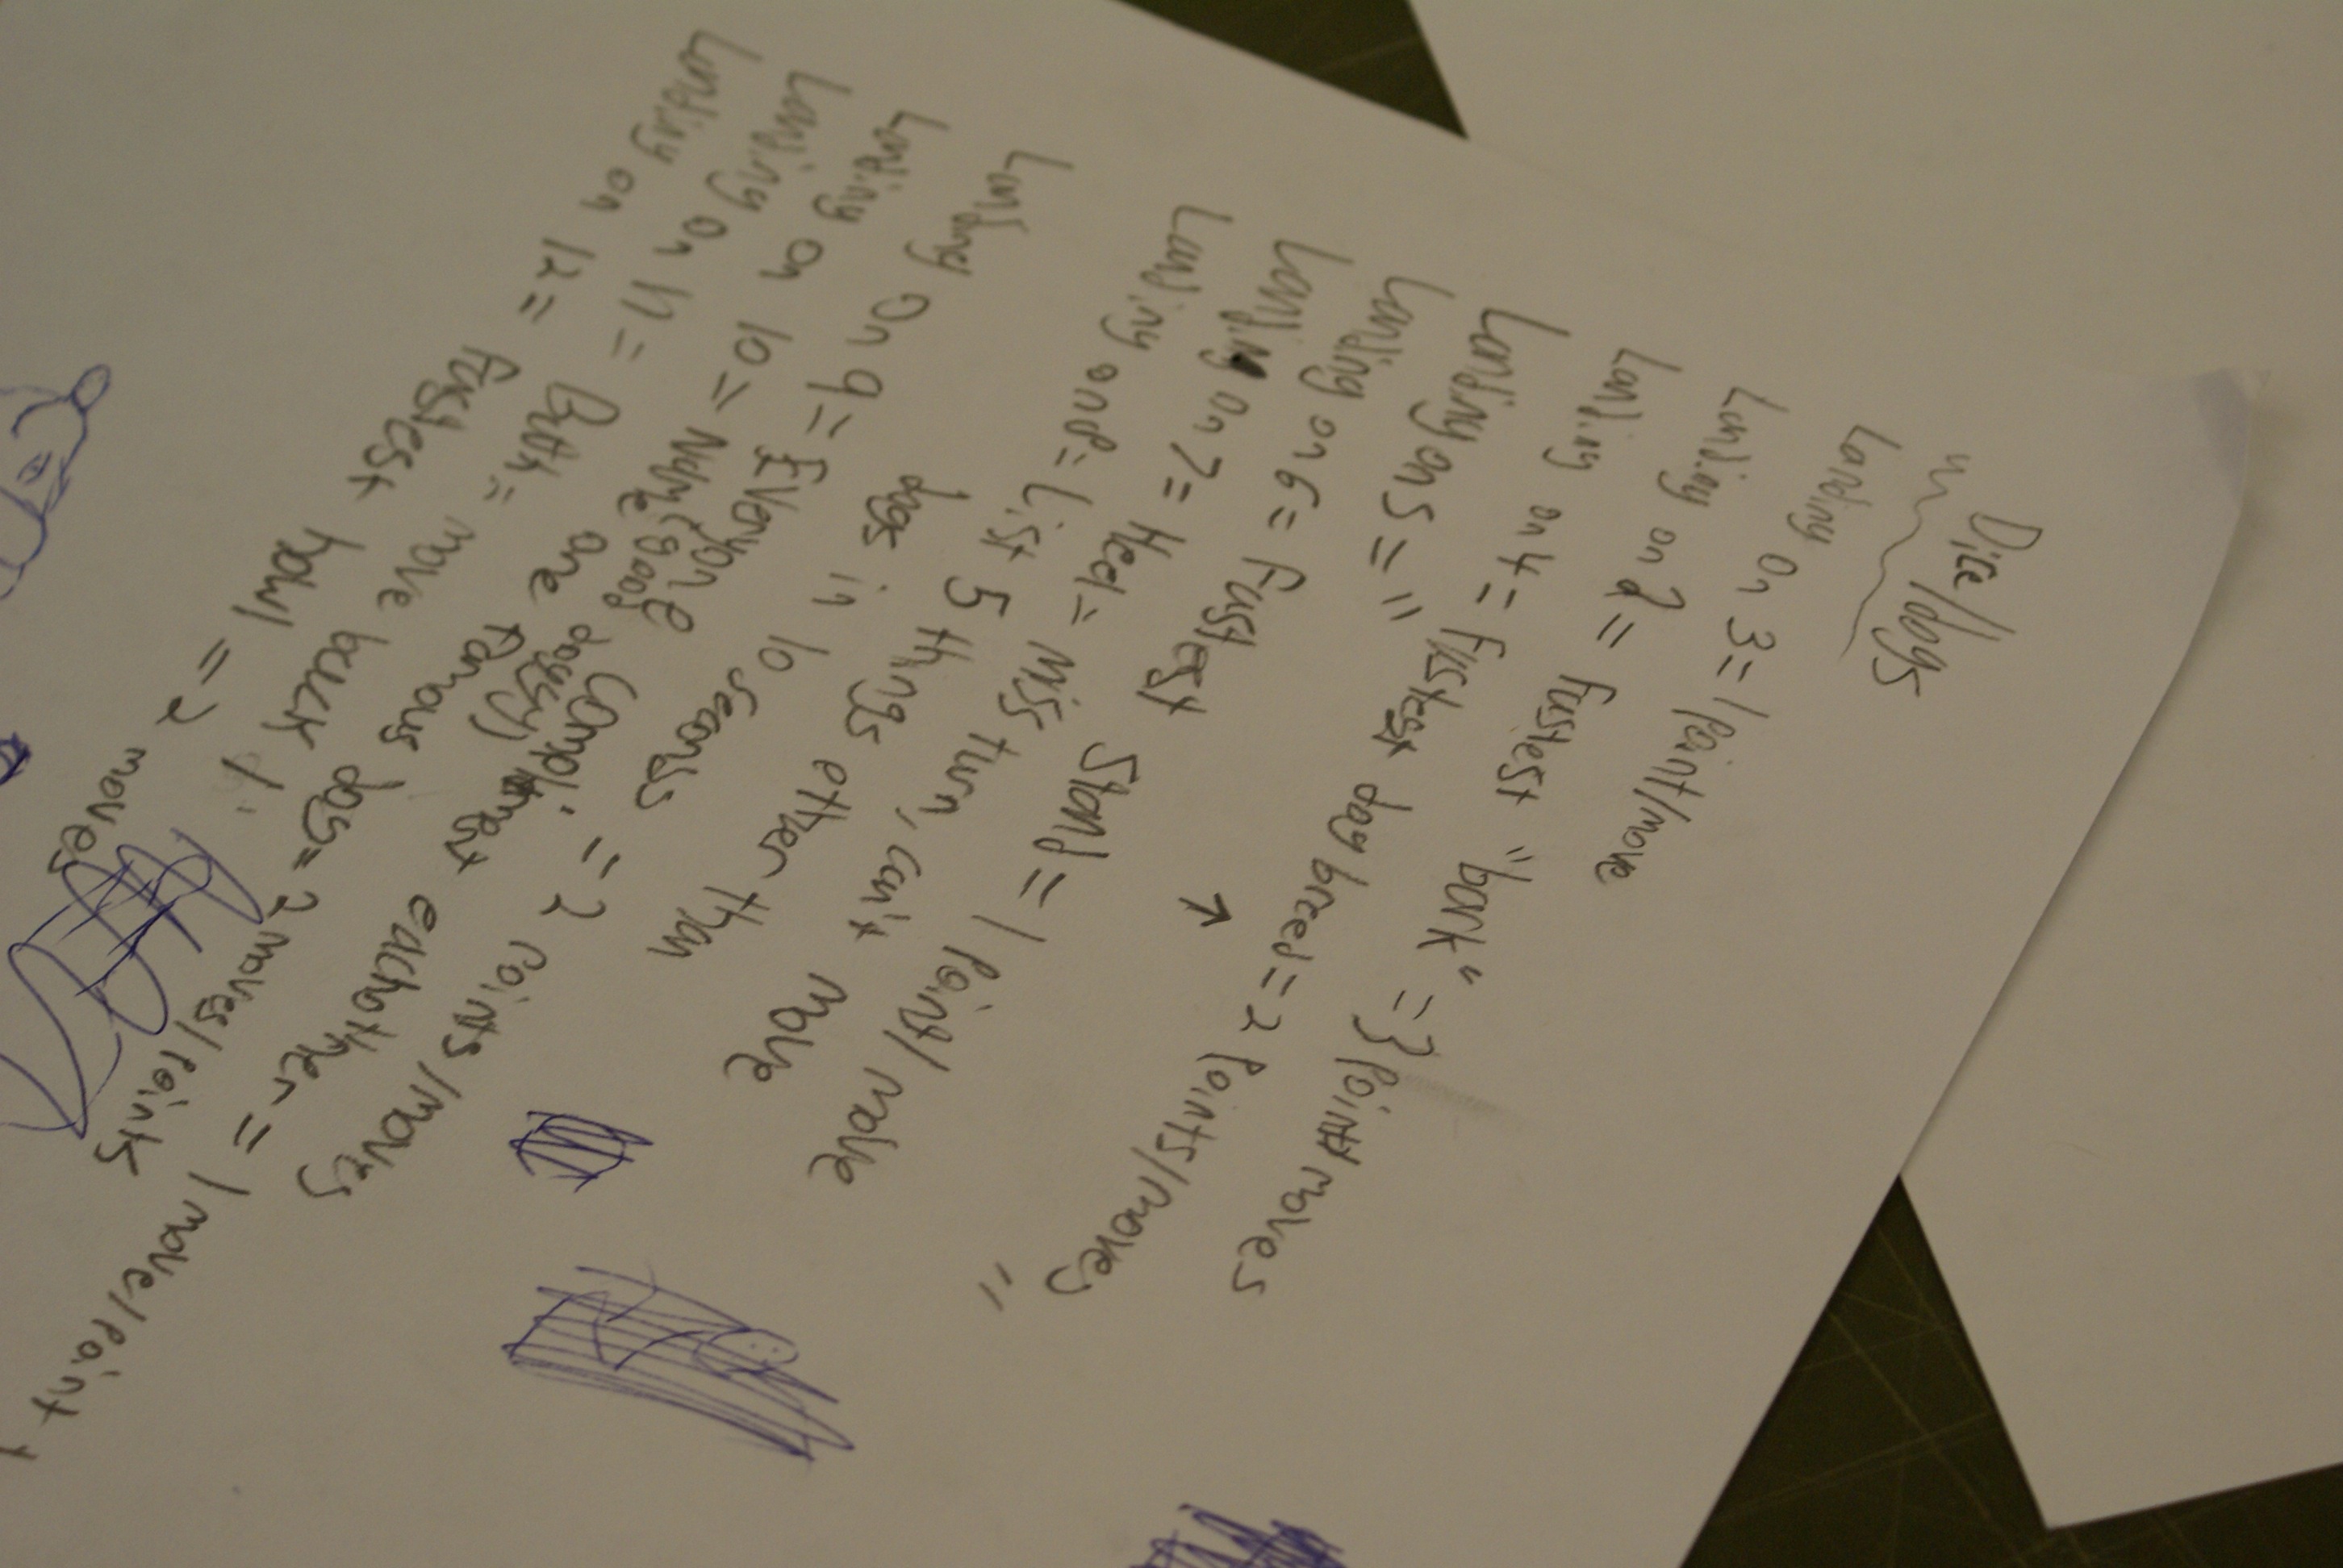 Dice/dogs
Landing on 3 = 1 point/move
Landing on 2 = Fastest "bark" = 3 point moves
Landing on 4 = Fastest dog breed = 2 points/moves
Landing on 5 = " ↓ "
Landing on 6 = Fastest Stand = 1 point/move
Landing on 7 = Heel = Miss turn, can't move
Landing on 8 = List 5 things other than
dogs in 10 seconds
Landing on 9 = Everyone Compliment eachother = 1 move/point
Landing on 10 = Name one famous dog = 2 moves/points
Landing on 11 = Bath = move back 1
Landing on 12 = Fastest howl = 2 moves